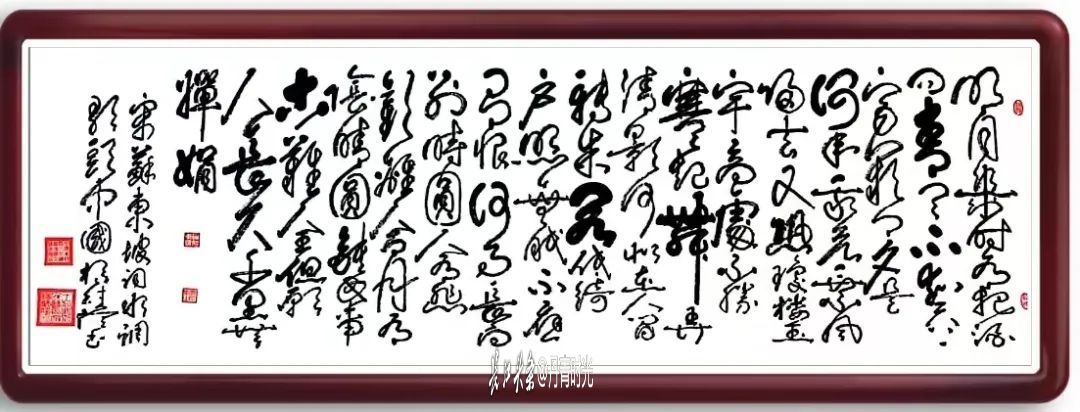 明月幾時有把酒
問青天不知天上
宮闕今夕是
何年我欲乘風
歸去又恐瓊樓玉
宇高處不勝
寒起舞弄
清影何似在人間
轉朱閣低綺
戶照無眠不應
有恨何事長向
別時圓人有悲
歡離合月有
陰晴圓缺此事
古難全但願
人長久千里共
嬋娟
宋蘇東坡詞水調
歌頭